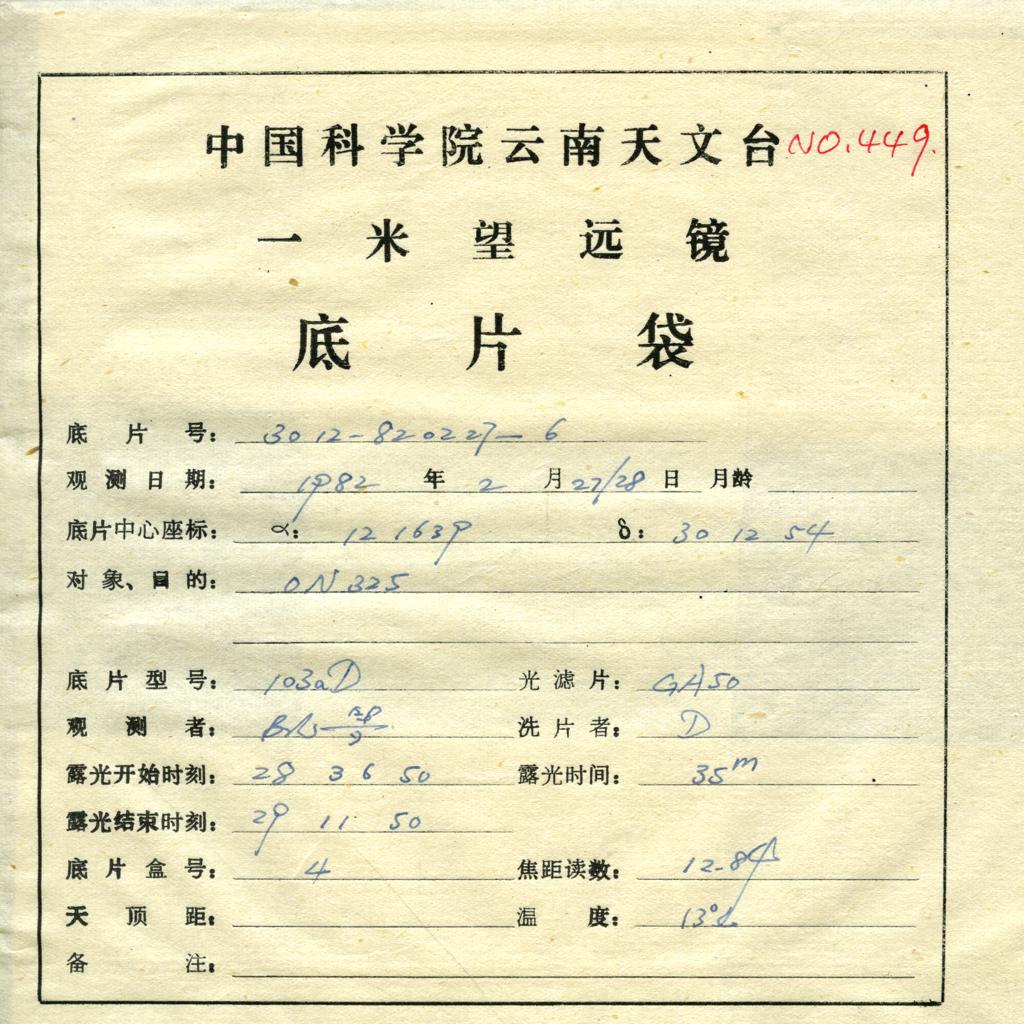 中国科学院云南天文台 NO.449.
一米望远镜
底片袋
底片号: 3012-820227-6
观测日期: 1982年2月27/28日 月龄
底片中心座标: α: 12 1639 δ: 30 12 54
对象、目的: ON 325
底片型号: 103aD 光滤片: GA50
观测者: 洗片者: D
露光开始时刻: 28 36 50 露光时间: 35m
露光结束时刻: 29 11 50
底片盒号: 4 焦距读数: 12.84
天顶距: 温度: 13°
备注: